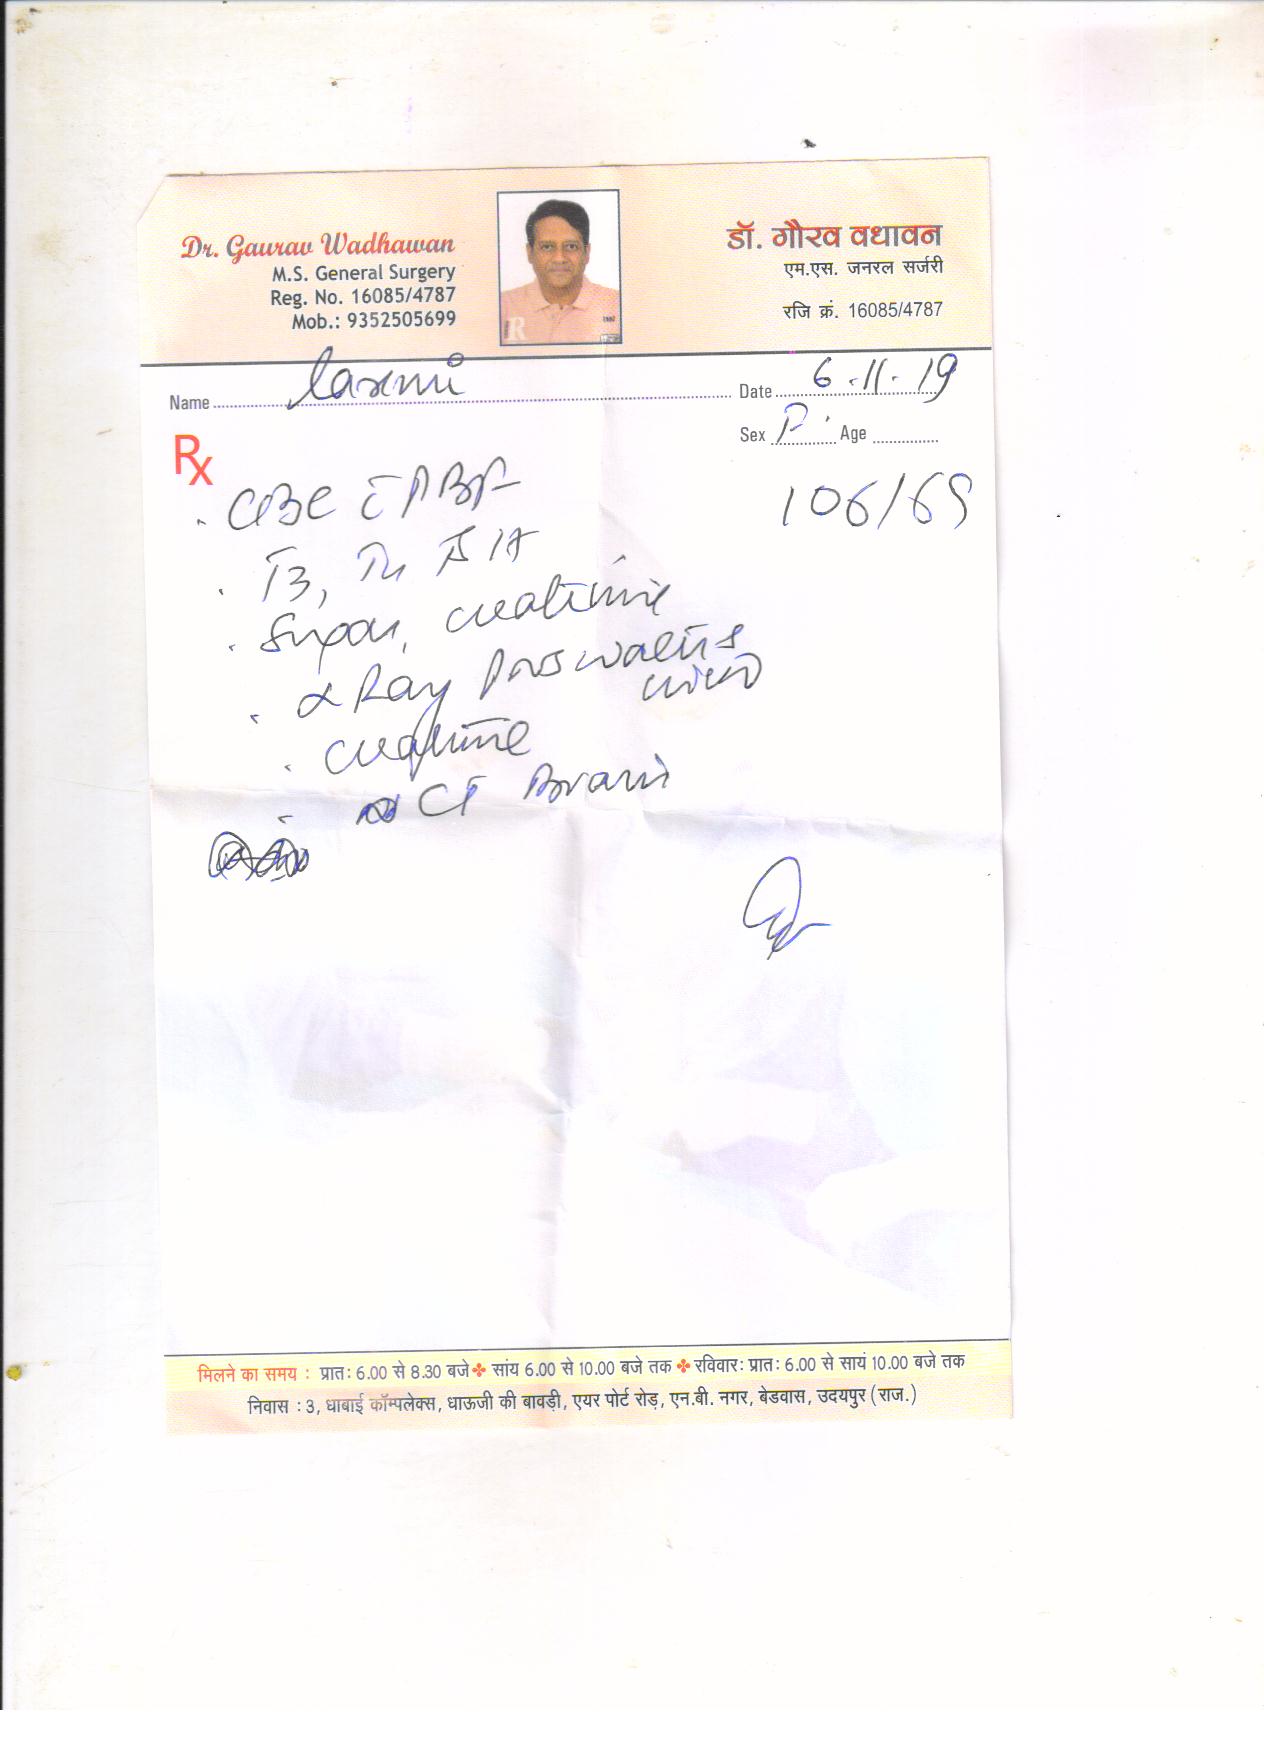 Dr. Gaurav Wadhawan
M.S. General Surgery
Reg. No. 16085/4787
Mob.: 9352505699
डॉ. गौरव वधावन
एम.एस. जनरल सर्जरी
रजि क्रं. 16085/4787
Name Laxmi
Date 6.11.19
Sex F Age
Rx
106/69
CBC c̄ PBF
T3, T4 TSH
Sugar, creatinine
X Ray PNS Water's
view
creatinine
CT Brain
मिलने का समय : प्रातः 6.00 से 8.30 बजे सांय 6.00 से 10.00 बजे तक रविवारः प्रातः 6.00 से सायं 10.00 बजे तक
निवास : 3, धाबाई कॉम्पलेक्स, धाऊजी की बावड़ी, एयर पोर्ट रोड़, एन.बी. नगर, बेडवास, उदयपुर (राज.)